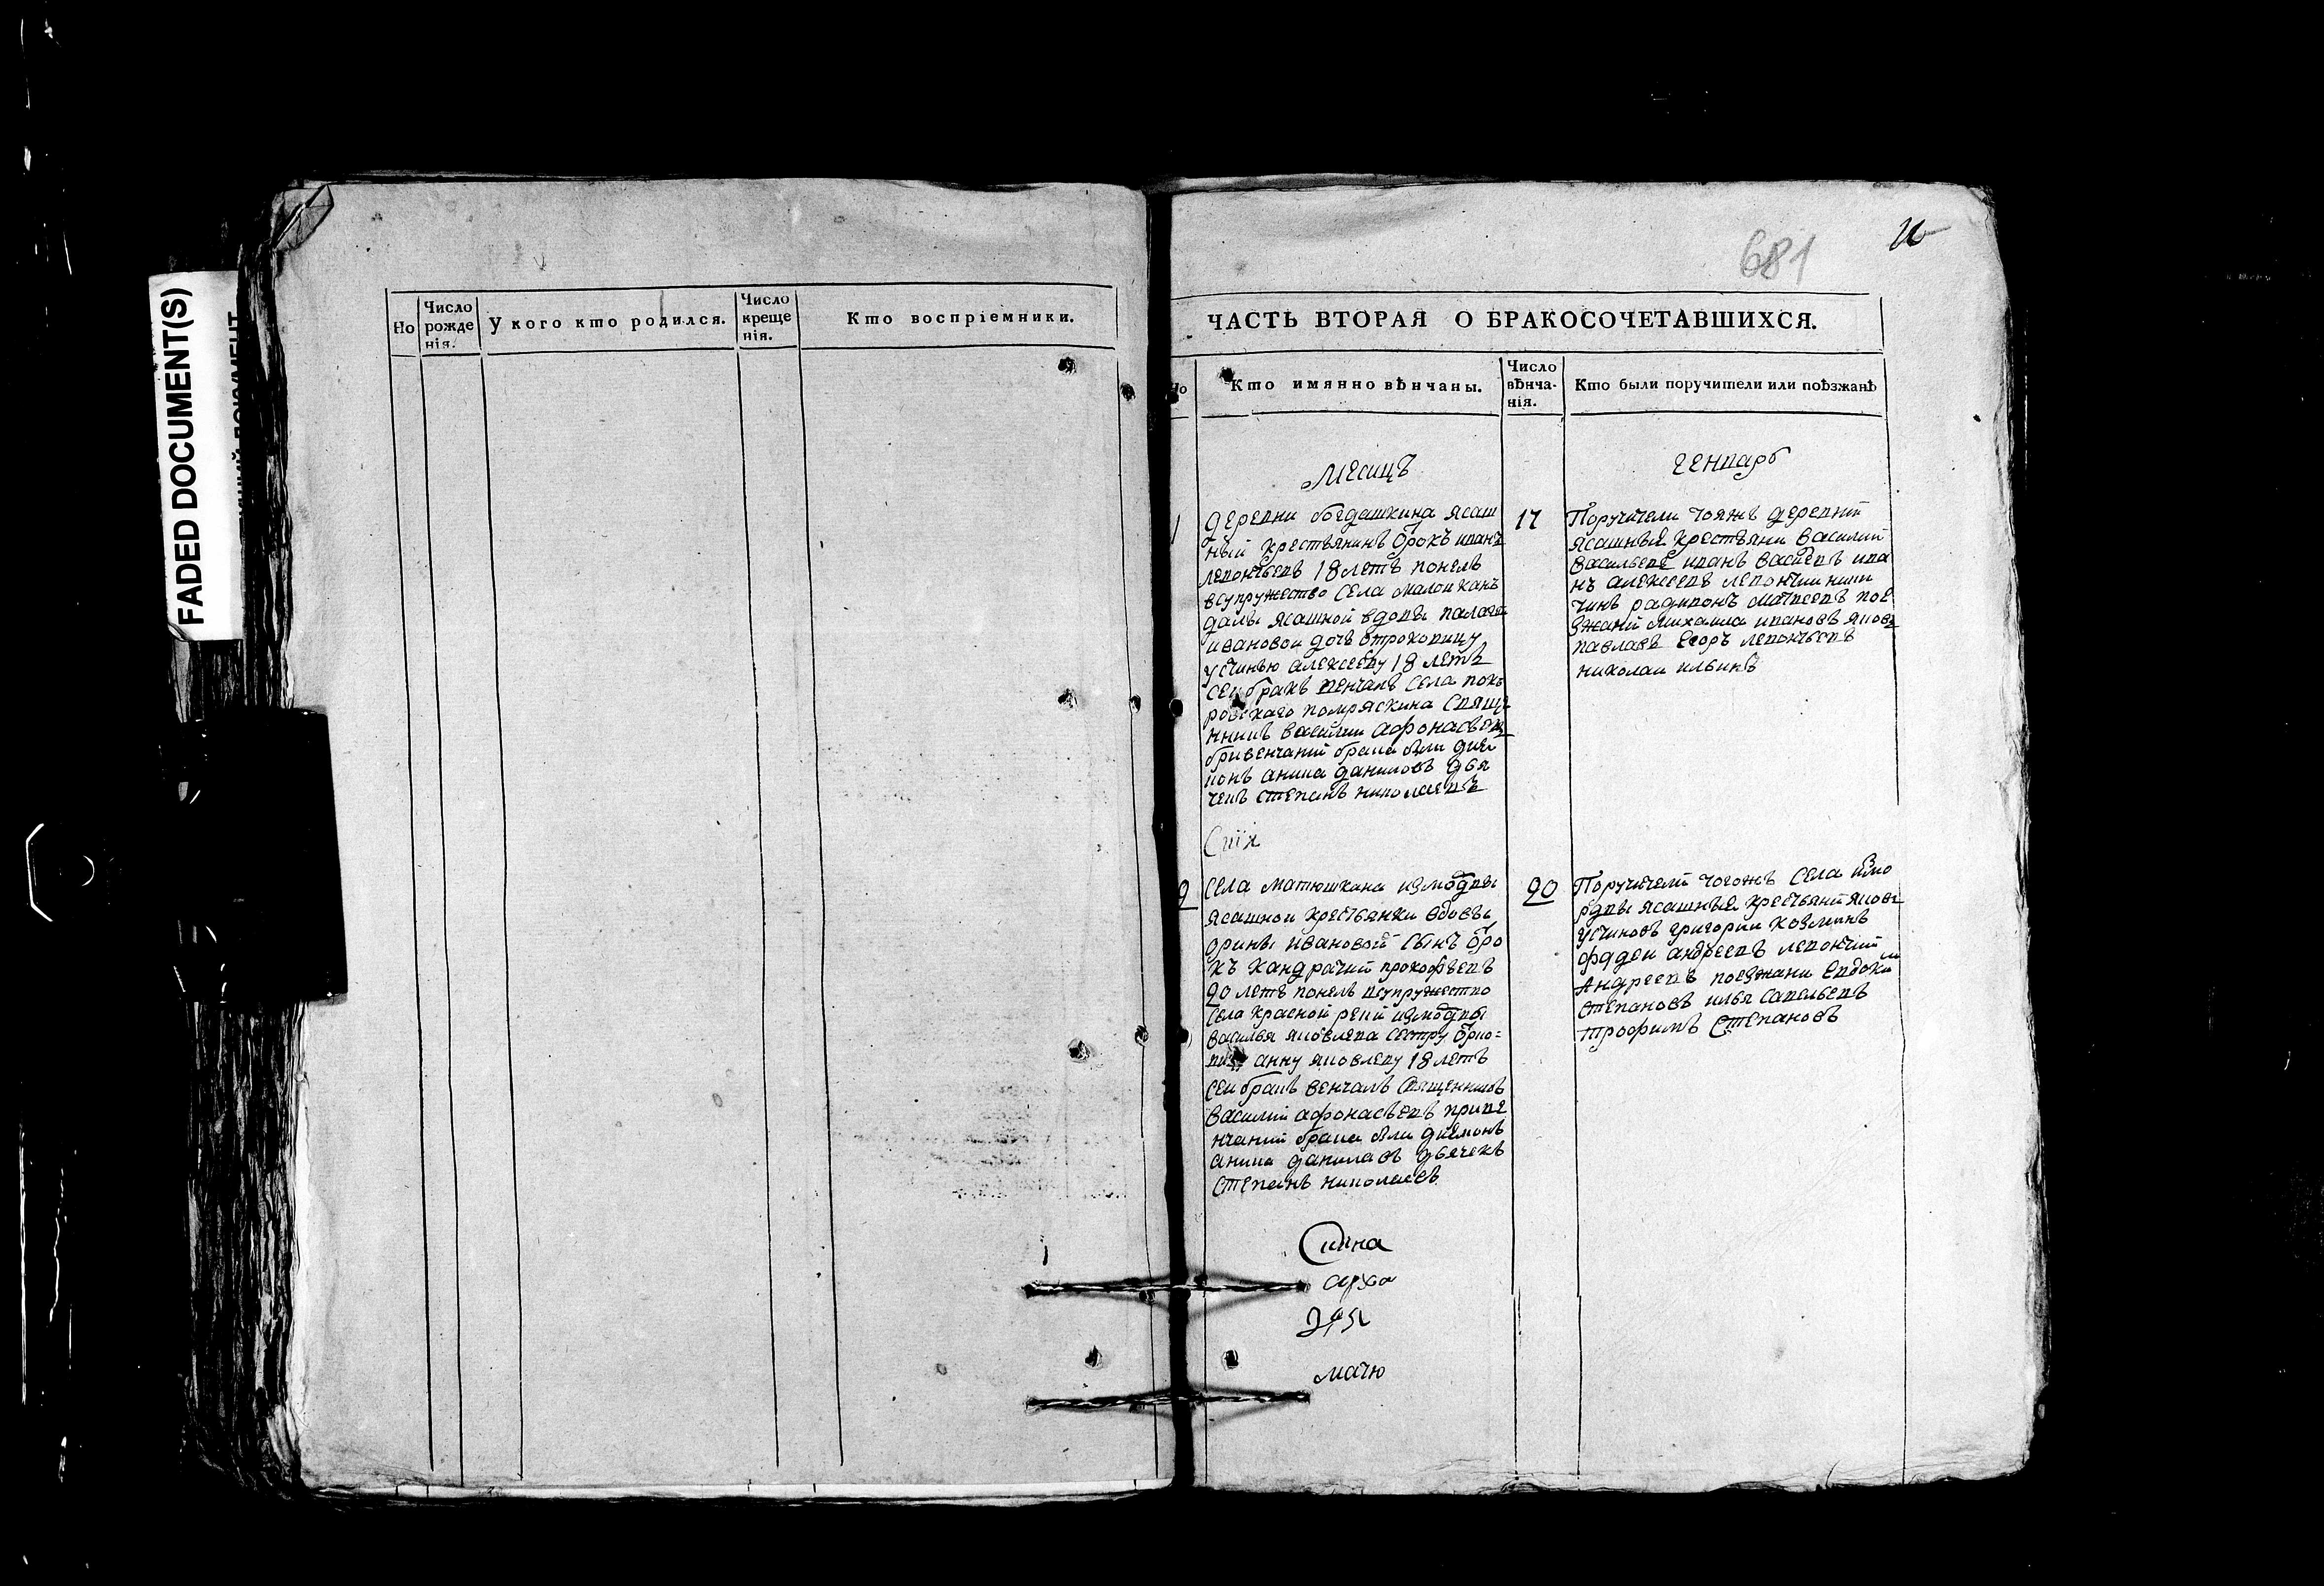 FADED DOCUMENT(S)
681
Но
Число рожде нія.
У кого кто родился.
Число креще нія.
Кто воспріемники.
ЧАСТЬ ВТОРАЯ О БРАКОСОЧЕТАВШИХСЯ.
Но
Кто имянно вѣнчаны.
Число вѣнча- нія.
Кто были поручители или поѣзжанѣ
Месицъ
генварь
1
деревни богдашкина ясаш
ный крестьянинъ Ѻрокъ иванъ
левонтьевъ 18 летъ понелъ
всупружество села малои канъ
далы ясашной вдовы палаге
ивановои дочь Ѻтроковицу
устинью алексеву 18 летъ
сеи бракъ венчалъ села покъ
ровскаго помряскина свяще
нникъ василии афонасьевъ
бривенчании брака были дие
конъ аника даниловъ дья
чекъ степанъ николаевъ
17
Поручители тояжъ деревни
ясашные крестьяни василий
васильевъ иванъ васиевъ ива
нъ алексеевъ левонтии ники
тинъ радивонъ матвеевъ пое
зжани михаила ивановъ яковъ
павлавъ егоръ левонтьевъ
николаи ильинъ
2
села матюшкина измордвы
ясашнои крестьянки вдовы
Ѻрины ивановой сынъ Ѻро
къ кандратий прокофьевъ
20 летъ понелъ всупружество
села красной реки измордвы
василья яковлева сестру Ѻтро=
анну яковлеву 18 летъ
сеи бракъ венчалъ священникъ
василий афонасьевъ приве
нчании брака были диеконъ
аника данилавъ дьячекъ
степанъ николаевъ
20
Поручители тогожъ села измо
рдвы ясашные крестьяни яковъ
устиновъ григории козминъ
фадеи андреевъ левонтий
андреевъ поезжани евдоки
степановъ илья савельевъ
трофимъ степановъ